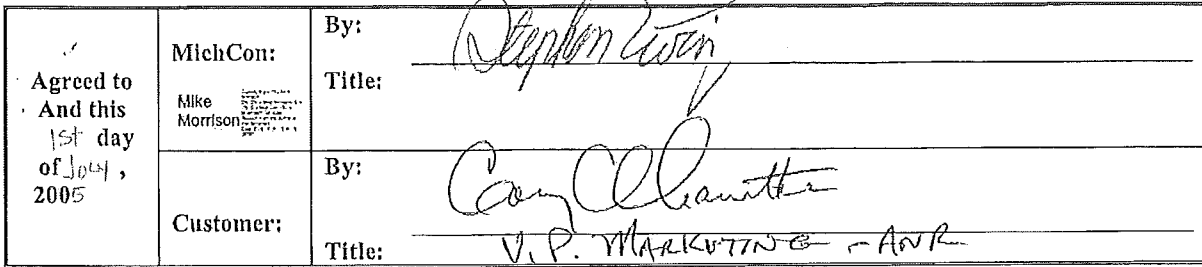 Agreed to
And this
1st day
of July,
2005
MichCon:
Mike
Morrison
By: Stephen Ewin
Title:
Customer:
By:
Title: V.P. MARKETING - ANR